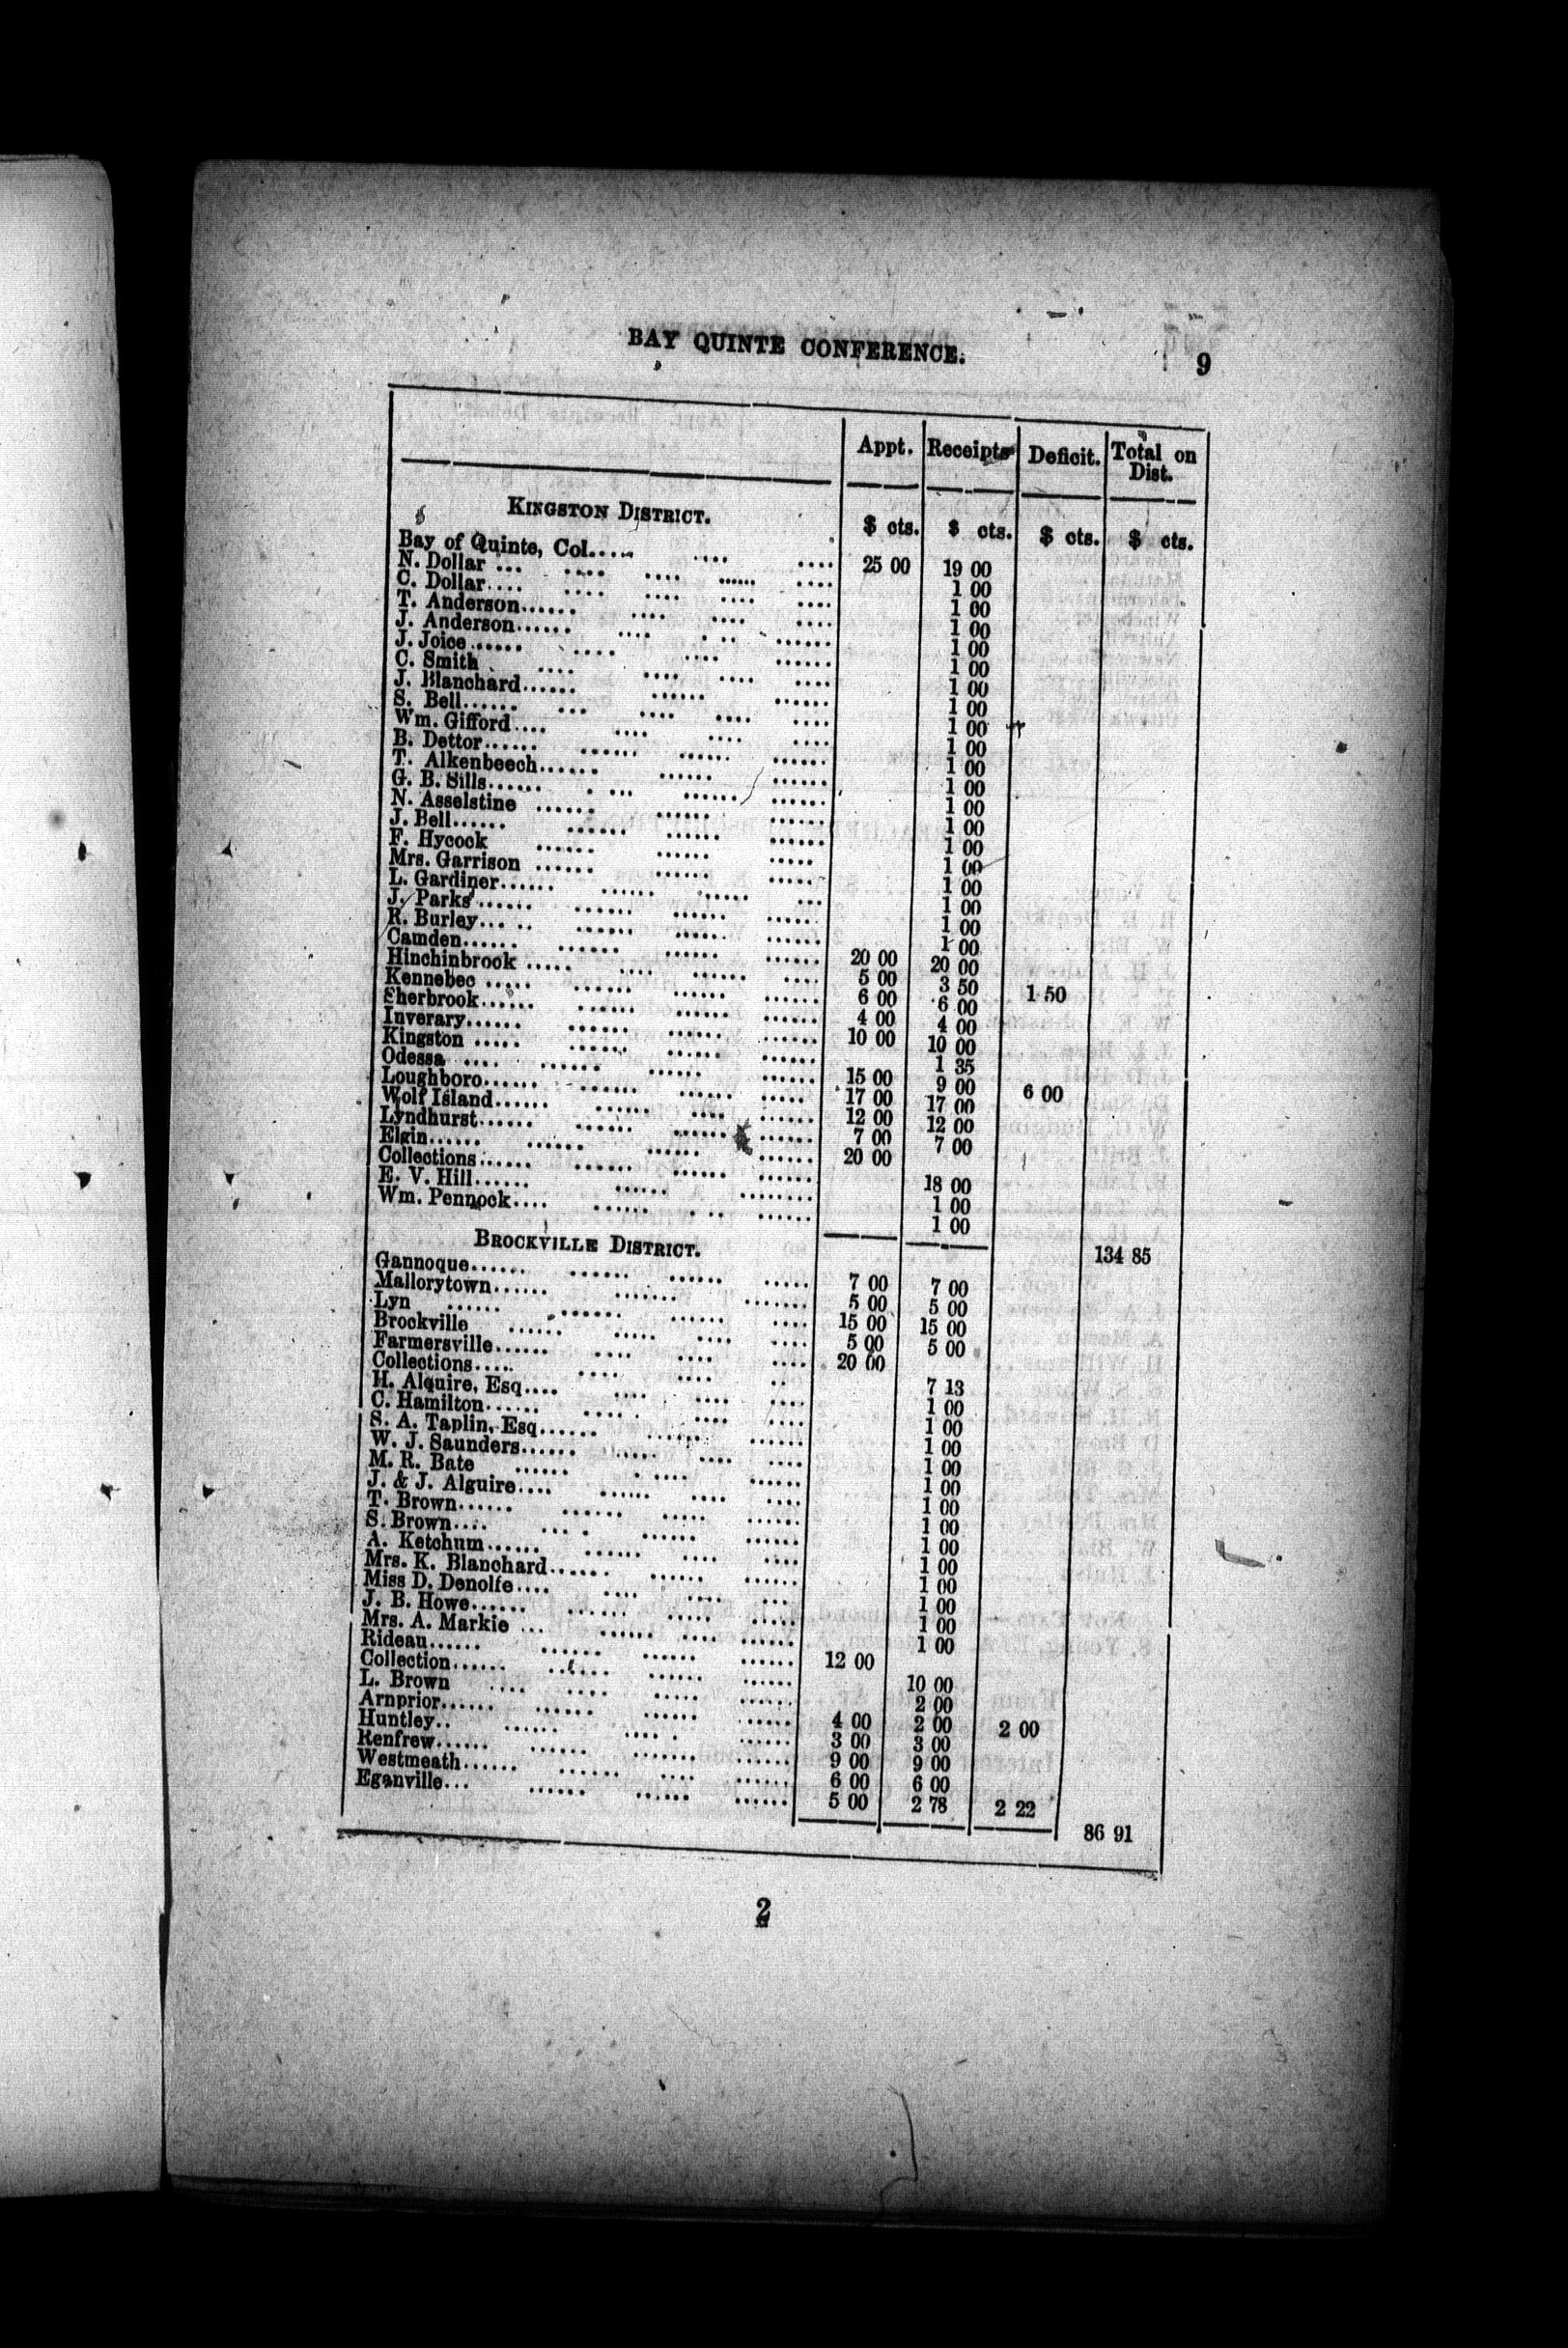 BAY QUINTE CONFERENCE. 9
Appt. Receipts Deficit. Total on Dist.
KINGSTON DISTRICT. $ cts. $ cts. $ cts. $ cts.
Bay of Quinte, Col.... 25 00 19 00
N. Dollar ... 1 00
C. Dollar.... 1 00
T. Anderson...... 1 00
J. Anderson...... 1 00
J. Joice...... 1 00
C. Smith .... 1 00
J. Blanchard...... 1 00
S. Bell...... 1 00
Wm. Gifford.... 1 00
B. Dettor...... 1 00
T. Alkenbeech...... 1 00
G. B. Sills...... 1 00
N. Asselstine ...... 1 00
J. Bell...... 1 00
F. Hycock ...... 1 00
Mrs. Garrison ...... 1 00
L. Gardiner...... 1 00
J. Parks...... 1 00
R. Burley..... 1 00
Camden...... 20 00 20 00
Hinchinbrook ..... 5 00 3 50 1 50
Kennebec ..... 6 00 6 00
Sherbrook...... 4 00 4 00
Inverary...... 10 00 10 00
Kingston ..... 1 35
Odessa ..... 15 00 9 00 6 00
Loughboro...... 17 00 17 00
Wolf Island...... 12 00 12 00
Lyndhurst...... 7 00 7 00
Elgin...... 20 00
Collections...... 18 00
E. V. Hill...... 1 00
Wm. Pennock.... 1 00
134 85
BROCKVILLE DISTRICT.
Gannoque...... 7 00 7 00
Mallorytown...... 5 00 5 00
Lyn ...... 15 00 15 00
Brockville ...... 5 00 5 00
Farmersville...... 20 00
Collections..... 7 13
H. Alquire, Esq.... 1 00
C. Hamilton...... 1 00
S. A. Taplin, Esq...... 1 00
W. J. Saunders...... 1 00
M. R. Bate ...... 1 00
J. & J. Alguire.... 1 00
T. Brown...... 1 00
S. Brown.... 1 00
A. Ketchum...... 1 00
Mrs. K. Blanchard...... 1 00
Miss D. Denolfe.... 1 00
J. B. Howe...... 1 00
Mrs. A. Markie ... 1 00
Rideau...... 12 00
Collection...... 10 00
L. Brown .... 2 00
Arnprior...... 4 00 2 00 2 00
Huntley.. 3 00 3 00
Renfrew...... 9 00 9 00
Westmeath...... 6 00 6 00
Eganville... 5 00 2 78 2 22
86 91
2